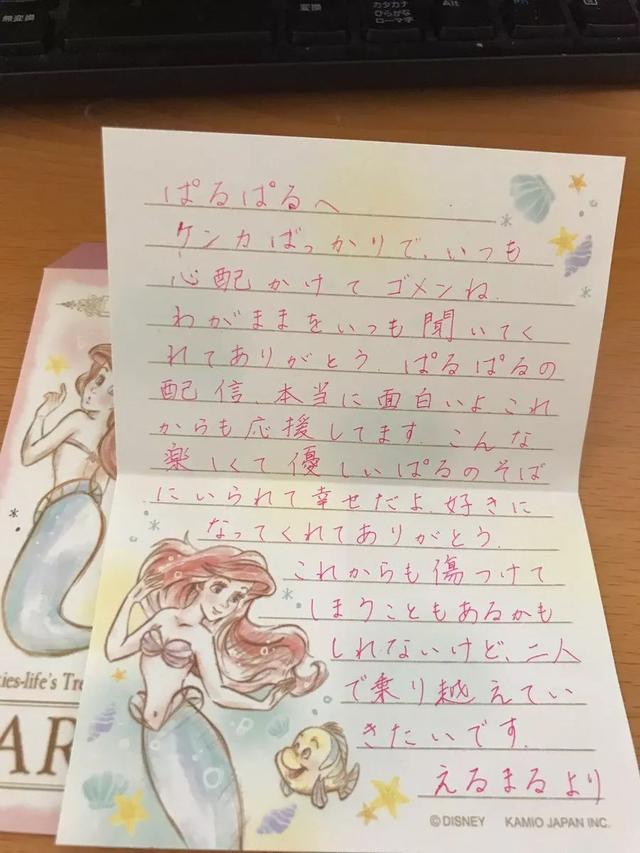 無変換
変換
カタカナ
ひらがな
ローマ字
Alt
ぱるぱるへ
ケンカばっかりで、いつも
心配かけてゴメンね.
わがままをいつも聞いてく
れてありがとう. ぱるぱるの
配信.本当に面白いよこれ
からも応援してます. こんな
楽しくて優しいぱるのそば
にいられて幸せだよ.好きに
なってくれてありがとう.
これからも傷つけて
しまうこともあるかも
しれないけど、二人
で乗り越えてい
きたいです.
えるまるより
©DISNEY KAMIO JAPAN INC.
ies-life's Tre
AR